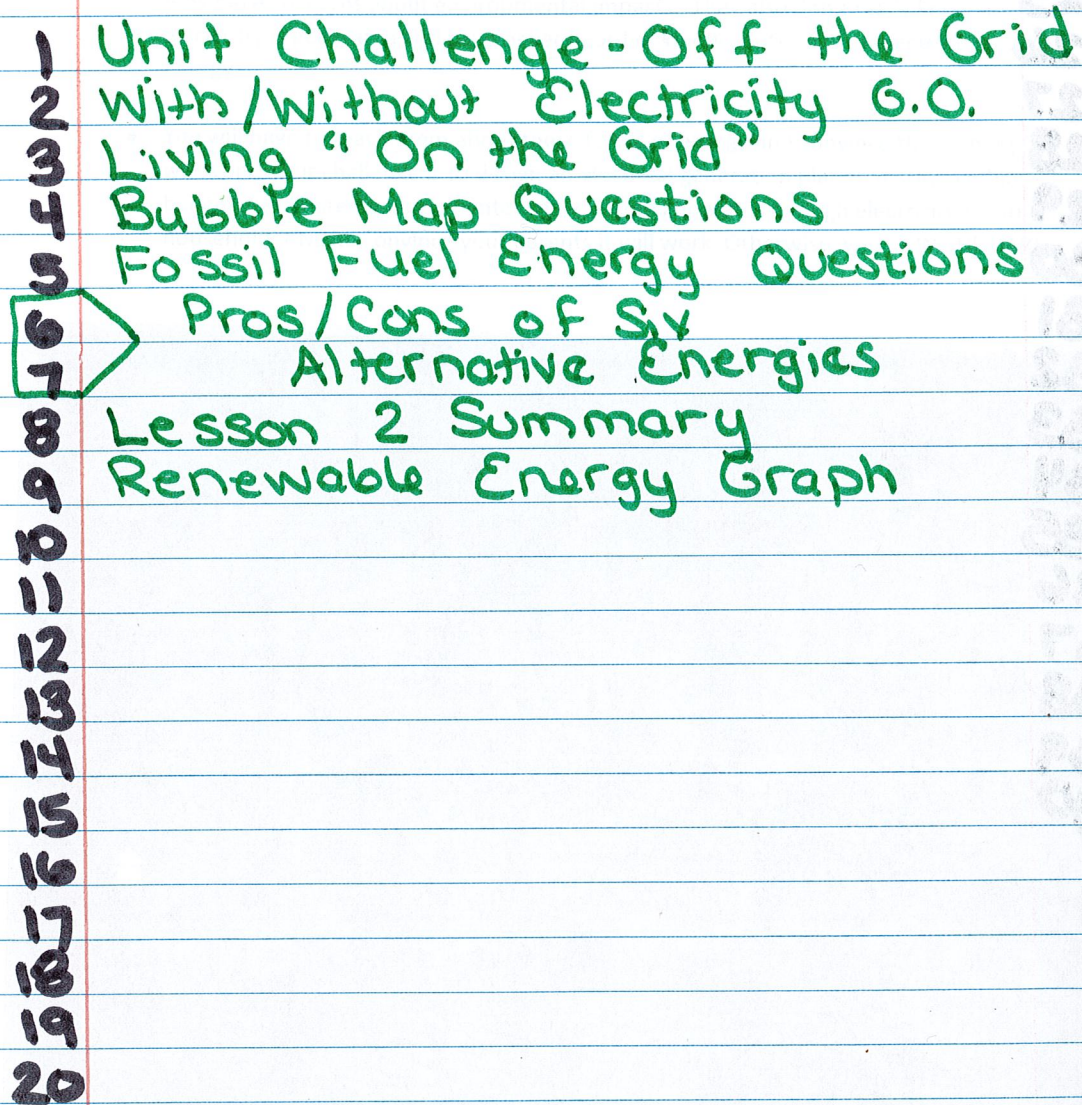 1 Unit Challenge - Off the Grid
2 With/Without Electricity G.O.
3 Living "On the Grid"
4 Bubble Map Questions
5 Fossil Fuel Energy Questions
6 Pros/Cons of Six
7 Alternative Energies
8 Lesson 2 Summary
9 Renewable Energy Graph
10
11
12
13
14
15
16
17
18
19
20